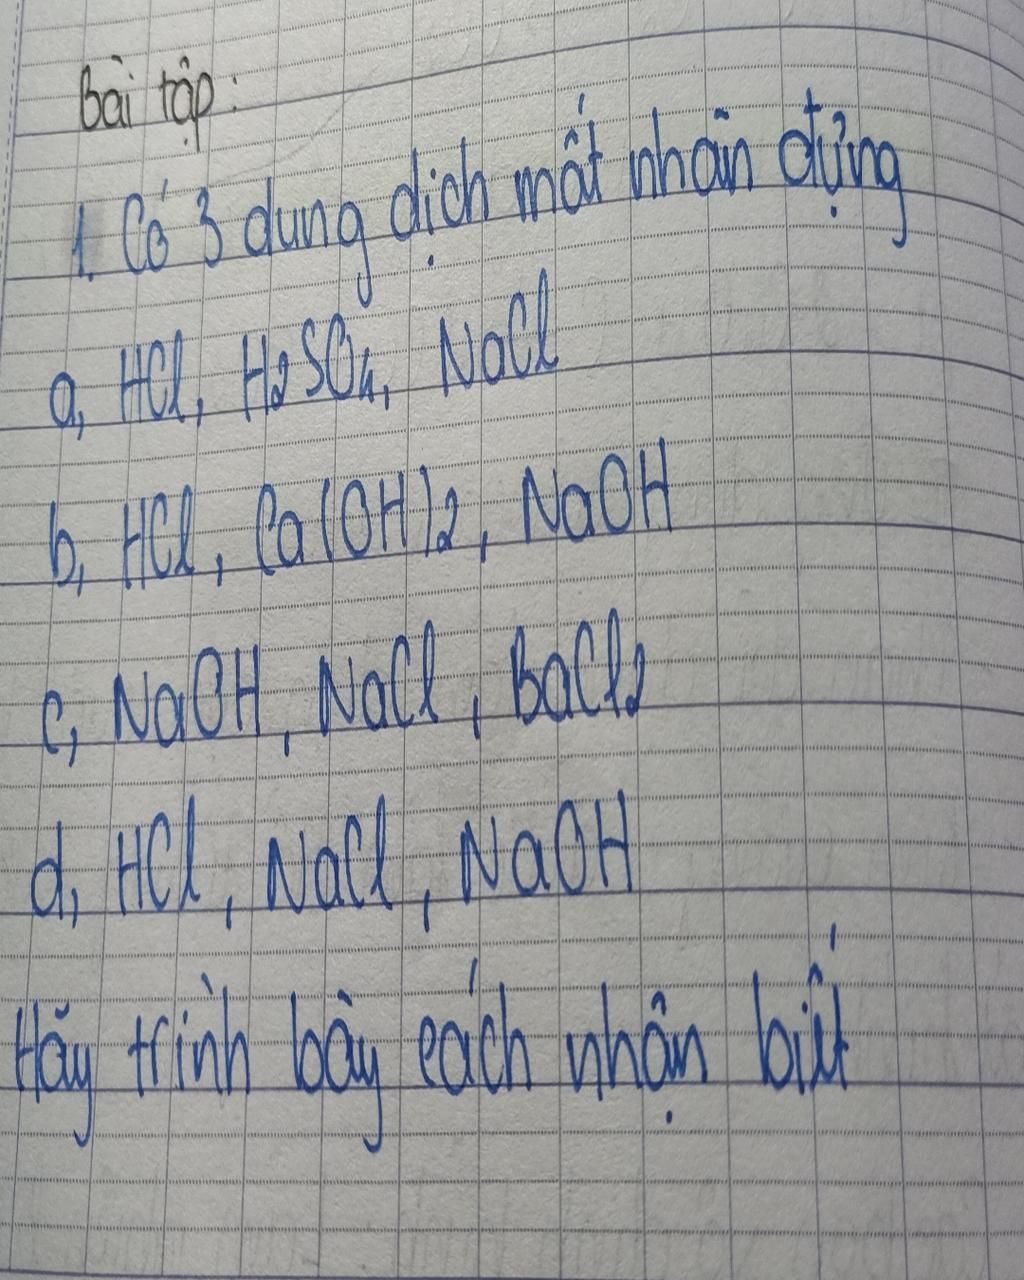 Bài tập:
1. Có 3 dung dịch mất nhãn đựng
a, HCl, H2SO4, NaCl
b, HCl, Ca(OH)2, NaOH
c, NaOH, NaCl, BaCl2
d, HCl, NaCl, NaOH
Hãy trình bày cách nhận biết